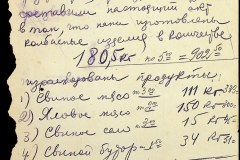 составили настоящий акт
в том, что нами изготовлены
колбасные изделия в количестве
180,5кг по 5= = 902 50
израсходованы продукты:
1) Свиное мясо 111 кг
2) Яловое мясо 150 кг
3) Свиное сало 15 кг
4) Свиной бутор 34 кг